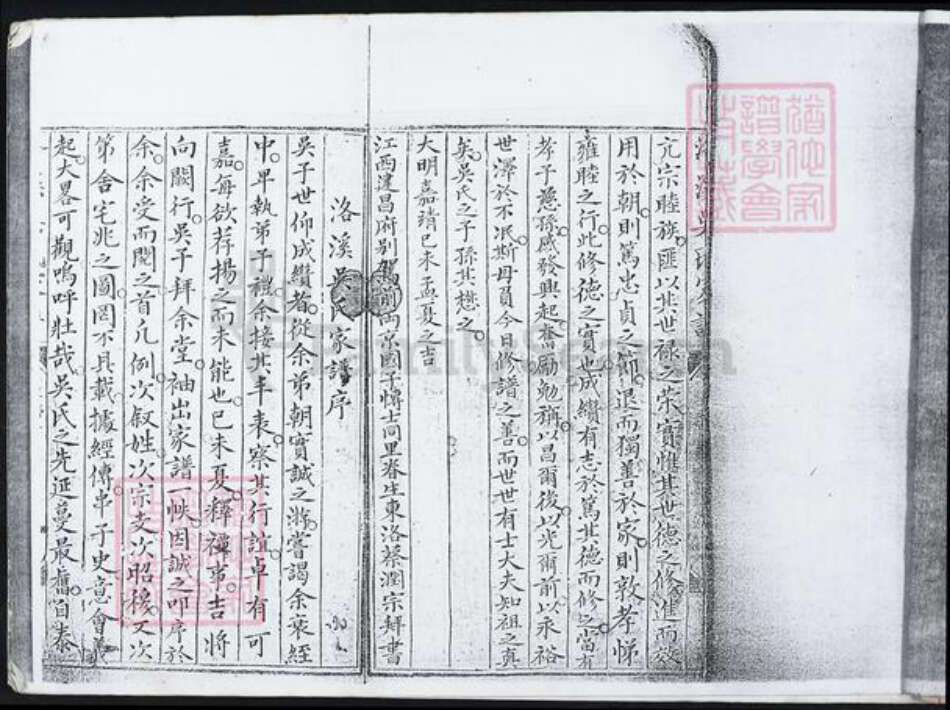 亢宗睦族匪以其世禄之荣實惟其世德之修進而效
用於朝則篤忠貞之節退而獨善於家則敦孝悌
雍睦之行此修德之實也成纘有志於篤其德而修之當有
孝子慈孫感發興起奮勵勉稱以昌爾後以光爾前以永裕
世澤於不泯斯毋負今日修譜之善而世世有士大夫知祖之真
矣吳氏之子孫其懋之
大明嘉靖已未孟夏之吉
江西建昌府别駕前両京國子愽士同里眷生東洛蔡潤宗拜書
洛溪吳氏家譜序
吳子世仰成纘者從余弟朝賓誠之游嘗謁余衰絰
中早執弟子禮余接其丰表察其行誼卓有可
嘉每欲荐揚之而未能也已未夏釋禫事吉將
向闕行吳子拜余堂袖出家譜一帙因誠之叩序於
余余受而閱之首凡例次叙姓次宗支次昭穆又次
第舍宅兆之圖罔不具載據經傳串子史意會義
起大畧可觀嗚呼壯哉吳氏之先延蔓最舊自泰
譜學會
FamilySearch